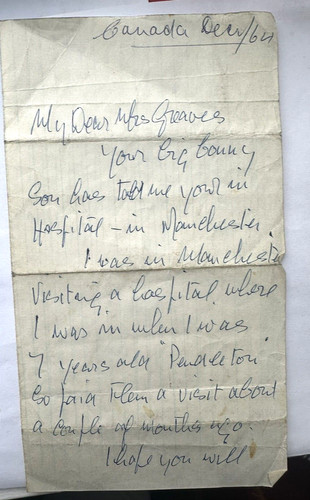 Canada Dec/64
My Dear Mrs Greaves
Your big bonny
Son has told me your in
Hospital - in Manchester.
I was in Manchester
Visiting a hospital where
I was in when I was
7 years old "Pendleton"
So paid them a visit about
a couple of months ago.
I hope you will